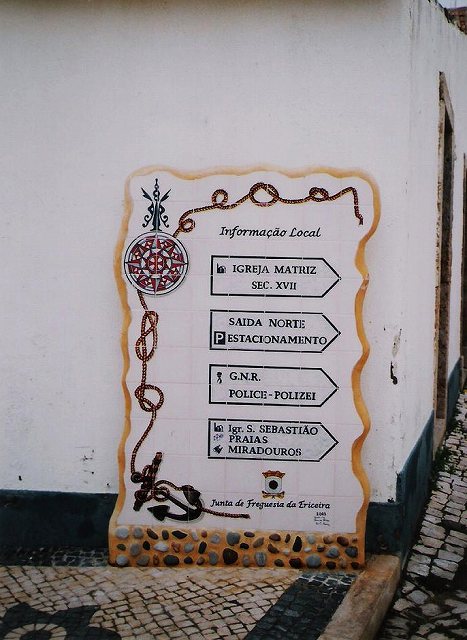 Informação Local
IGREJA MATRIZ
SEC. XVII
SAIDA NORTE
P ESTACIONAMENTO
G.N.R.
POLICE-POLIZEI
Igr. S. SEBASTIÃO
PRAIAS
MIRADOUROS
Junta de Freguesia da Ericeira